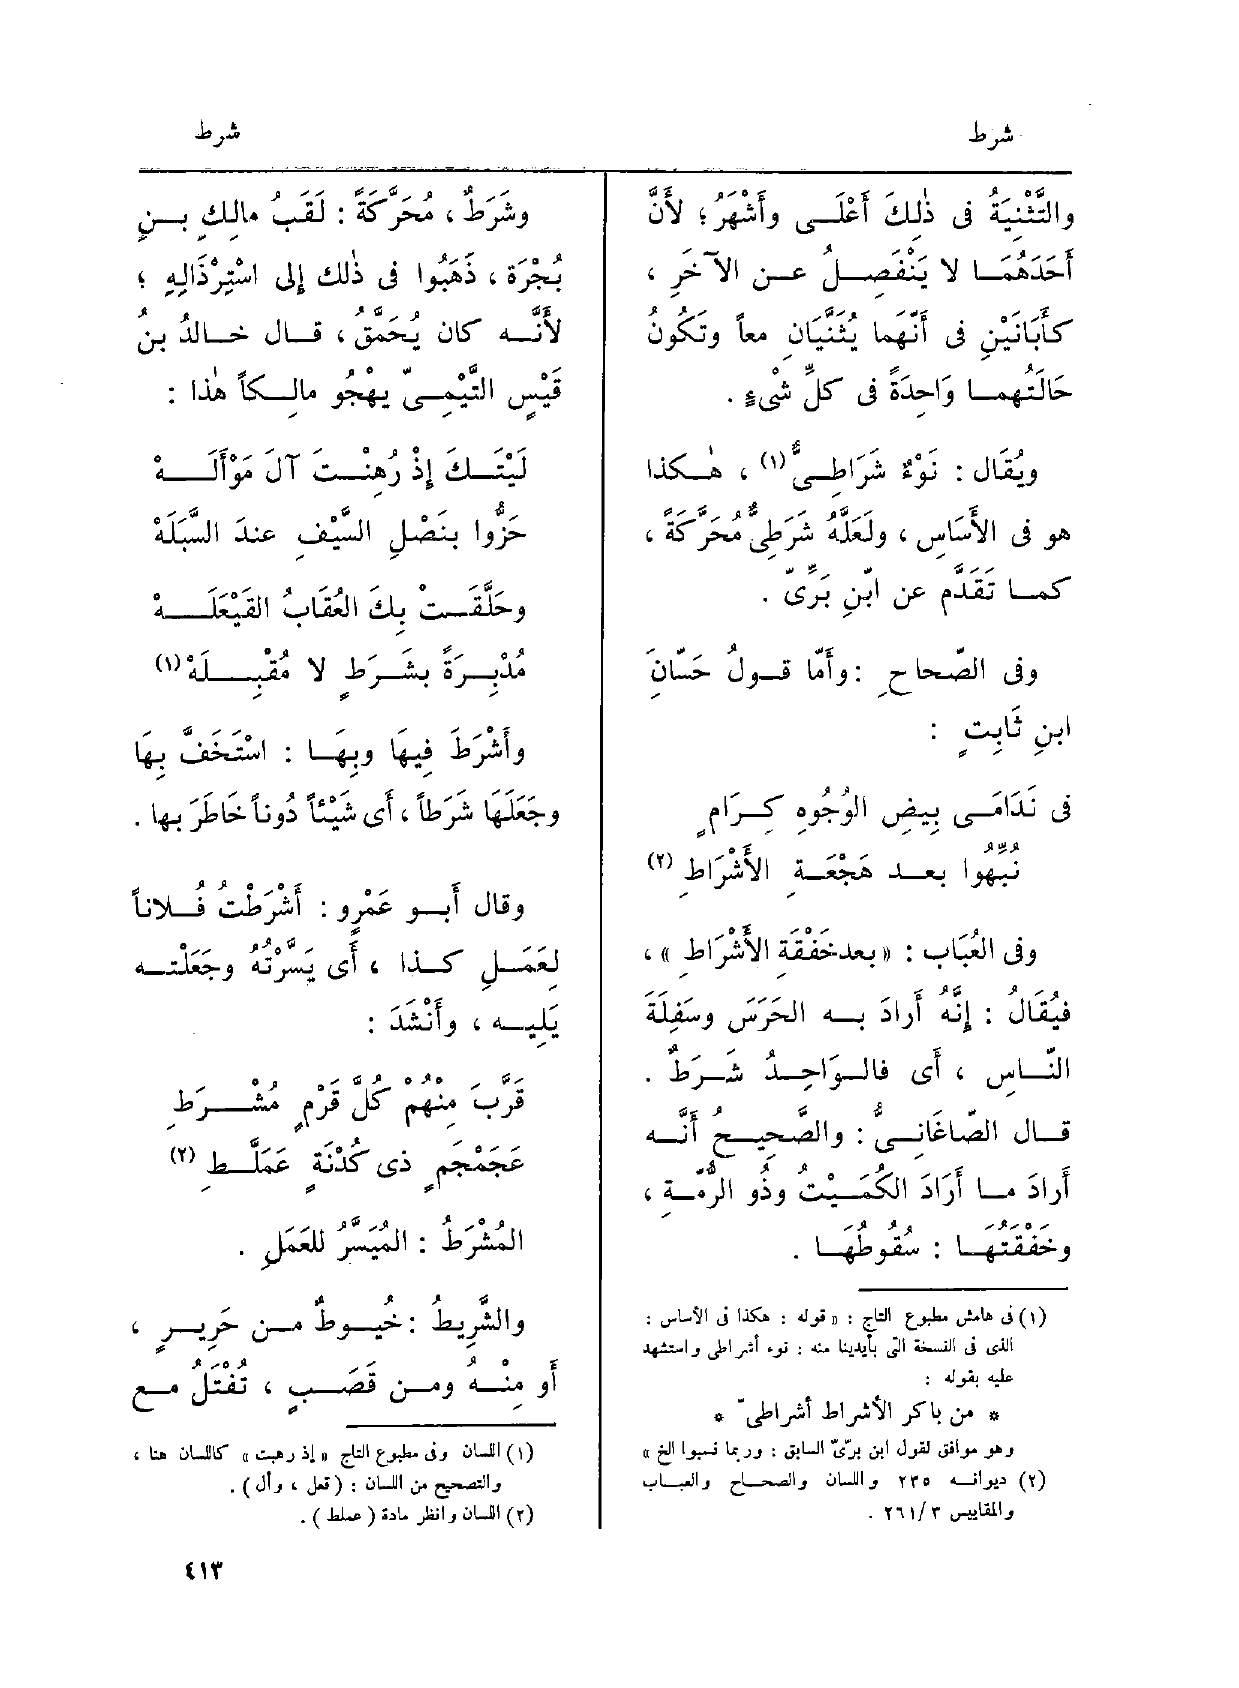 شرط
شرط
والتَّثْنِيَةُ فى ذٰلِكَ أَعْلَــى وأَشْهَرُ ؛ لأَنَّ
أَحَدَهُمَــا لا يَنْفَصِــلُ عــن الآخَرِ ،
كأَبَانَيْنِ فى أَنَّهما يُثَنَّيَان معاً وتَكُونُ
حَالَتُهمــا وَاحِدَةً فى كلِّ شْىءٍ .
ويُقَال : نَوْءٌ شَرَاطِــىٌّ (١) ، هٰــكذا
هو فى الأَسَاسِ ، ولَعَلَّهُ شَرَطِىٌّ مُحَرَّكَةً ،
كمــا تَقَدَّم عن ابْنِ بَرِّىّ .
وفى الصّحاحِ : وأَمّا قــولُ حَسّانَ
ابنِ ثَابِتٍ :
فى نَدَامَــى بِيضِ الوُجُوهِ كِــرَامٍ
نُبِّهُوا بعــد هَجْعَــةِ الأَشْرَاطِ (٢)
وفى العُبَاب : « بعد خَفْقَةِ الأَشْرَاطِ » ،
فيُقَالُ : إِنَّهُ أَرادَ بــه الحَرَسَ وسَفِلَةَ
النّــاسِ ، أَى فالــوَاحِــدُ شَــرَطٌ .
قــال الصّاغَانِــىُّ : والصَّحِيــحُ أَنَّــه
أَرادَ مــا أَرَادَ الكُمَــيْتُ وذُو الرُّمّــةِ ،
وخَفْقَتُهــا : سُقُوطُهَــا .
(١) فى هامش مطبوع التاج : « قوله : هكذا فى الأساس :
الذى فى النسخة التى بأيدينا منه : نوء أشراطى واستشهد
عليه بقوله :
* من باكر الأشراط أشراطىّ *
وهو موافق لقول ابن برّىّ السابق : وربما نسبوا الخ »
(٢) ديوانــه ٢٣٥ واللسان والصحــاح والعبــاب
والمقاييس ٣/٢٦١ .
وشَرَطٌ ، مُحَرَّكَةً : لَقَبُ مالكِ بــنِ
بُجْرَة ، ذَهَبُوا فى ذٰلك إلى اسْتِرْذَالِهِ ؛
لأَنَّــه كان يُحَمَّق ، قــال خــالدُ بنُ
قَيْسٍ التَّيْمِــىّ يهْجُو مالــكاً هٰذا :
لَيْتَــكَ إِذْ رُهِنْــتَ آلَ مَوْأَلَــهْ
حَزُّوا بنَصْلِ السَّيْفِ عندَ السَّبَلَهْ
وحَلَّقَــتْ بِكَ العُقَابُ القَيْعَلَــهْ
مُدْبِــرَةً بشَــرَطٍ لا مُقْبِــلَهْ (١)
وأَشْرَطَ فِيهَا وبِهَــا : اسْتَخَفَّ بِهَا
وجَعَلَهَا شَرَطاً ، أَى شَيْئاً دُوناً خَاطَرَ بها .
وقال أَبــو عَمْرٍو : أَشْرَطْتُ فُــلاناً
لِعَمَــلِ كــذا ، أَى يَسَّرْتُهُ وجَعَلْتــه
يَلِيــه ، وأَنْشَدَ :
قَرَّبَ مِنْهُمْ كُلَّ قَرْمٍ مُشْــرَطِ
عَجَمْجَمٍ ذى كِدْنَةٍ عَمَلَّــطِ (٢)
المُشْرَطُ : المُيَسَّرُ للعَمَلِ .
والشَّرِيطُ : خُيــوطٌ مــن حَرِيــرٍ ،
أَو مِنْــهُ ومــن قَصَــبٍ ، تُفْتَلُ مــع
(١) اللسان وفى مطبوع التاج « إذ رهبت » كاللسان هنا ،
والتصحيح من اللسان : (قعل ، وأل) .
(٢) اللسان وانظر مادة (عملط) .
٤١٣